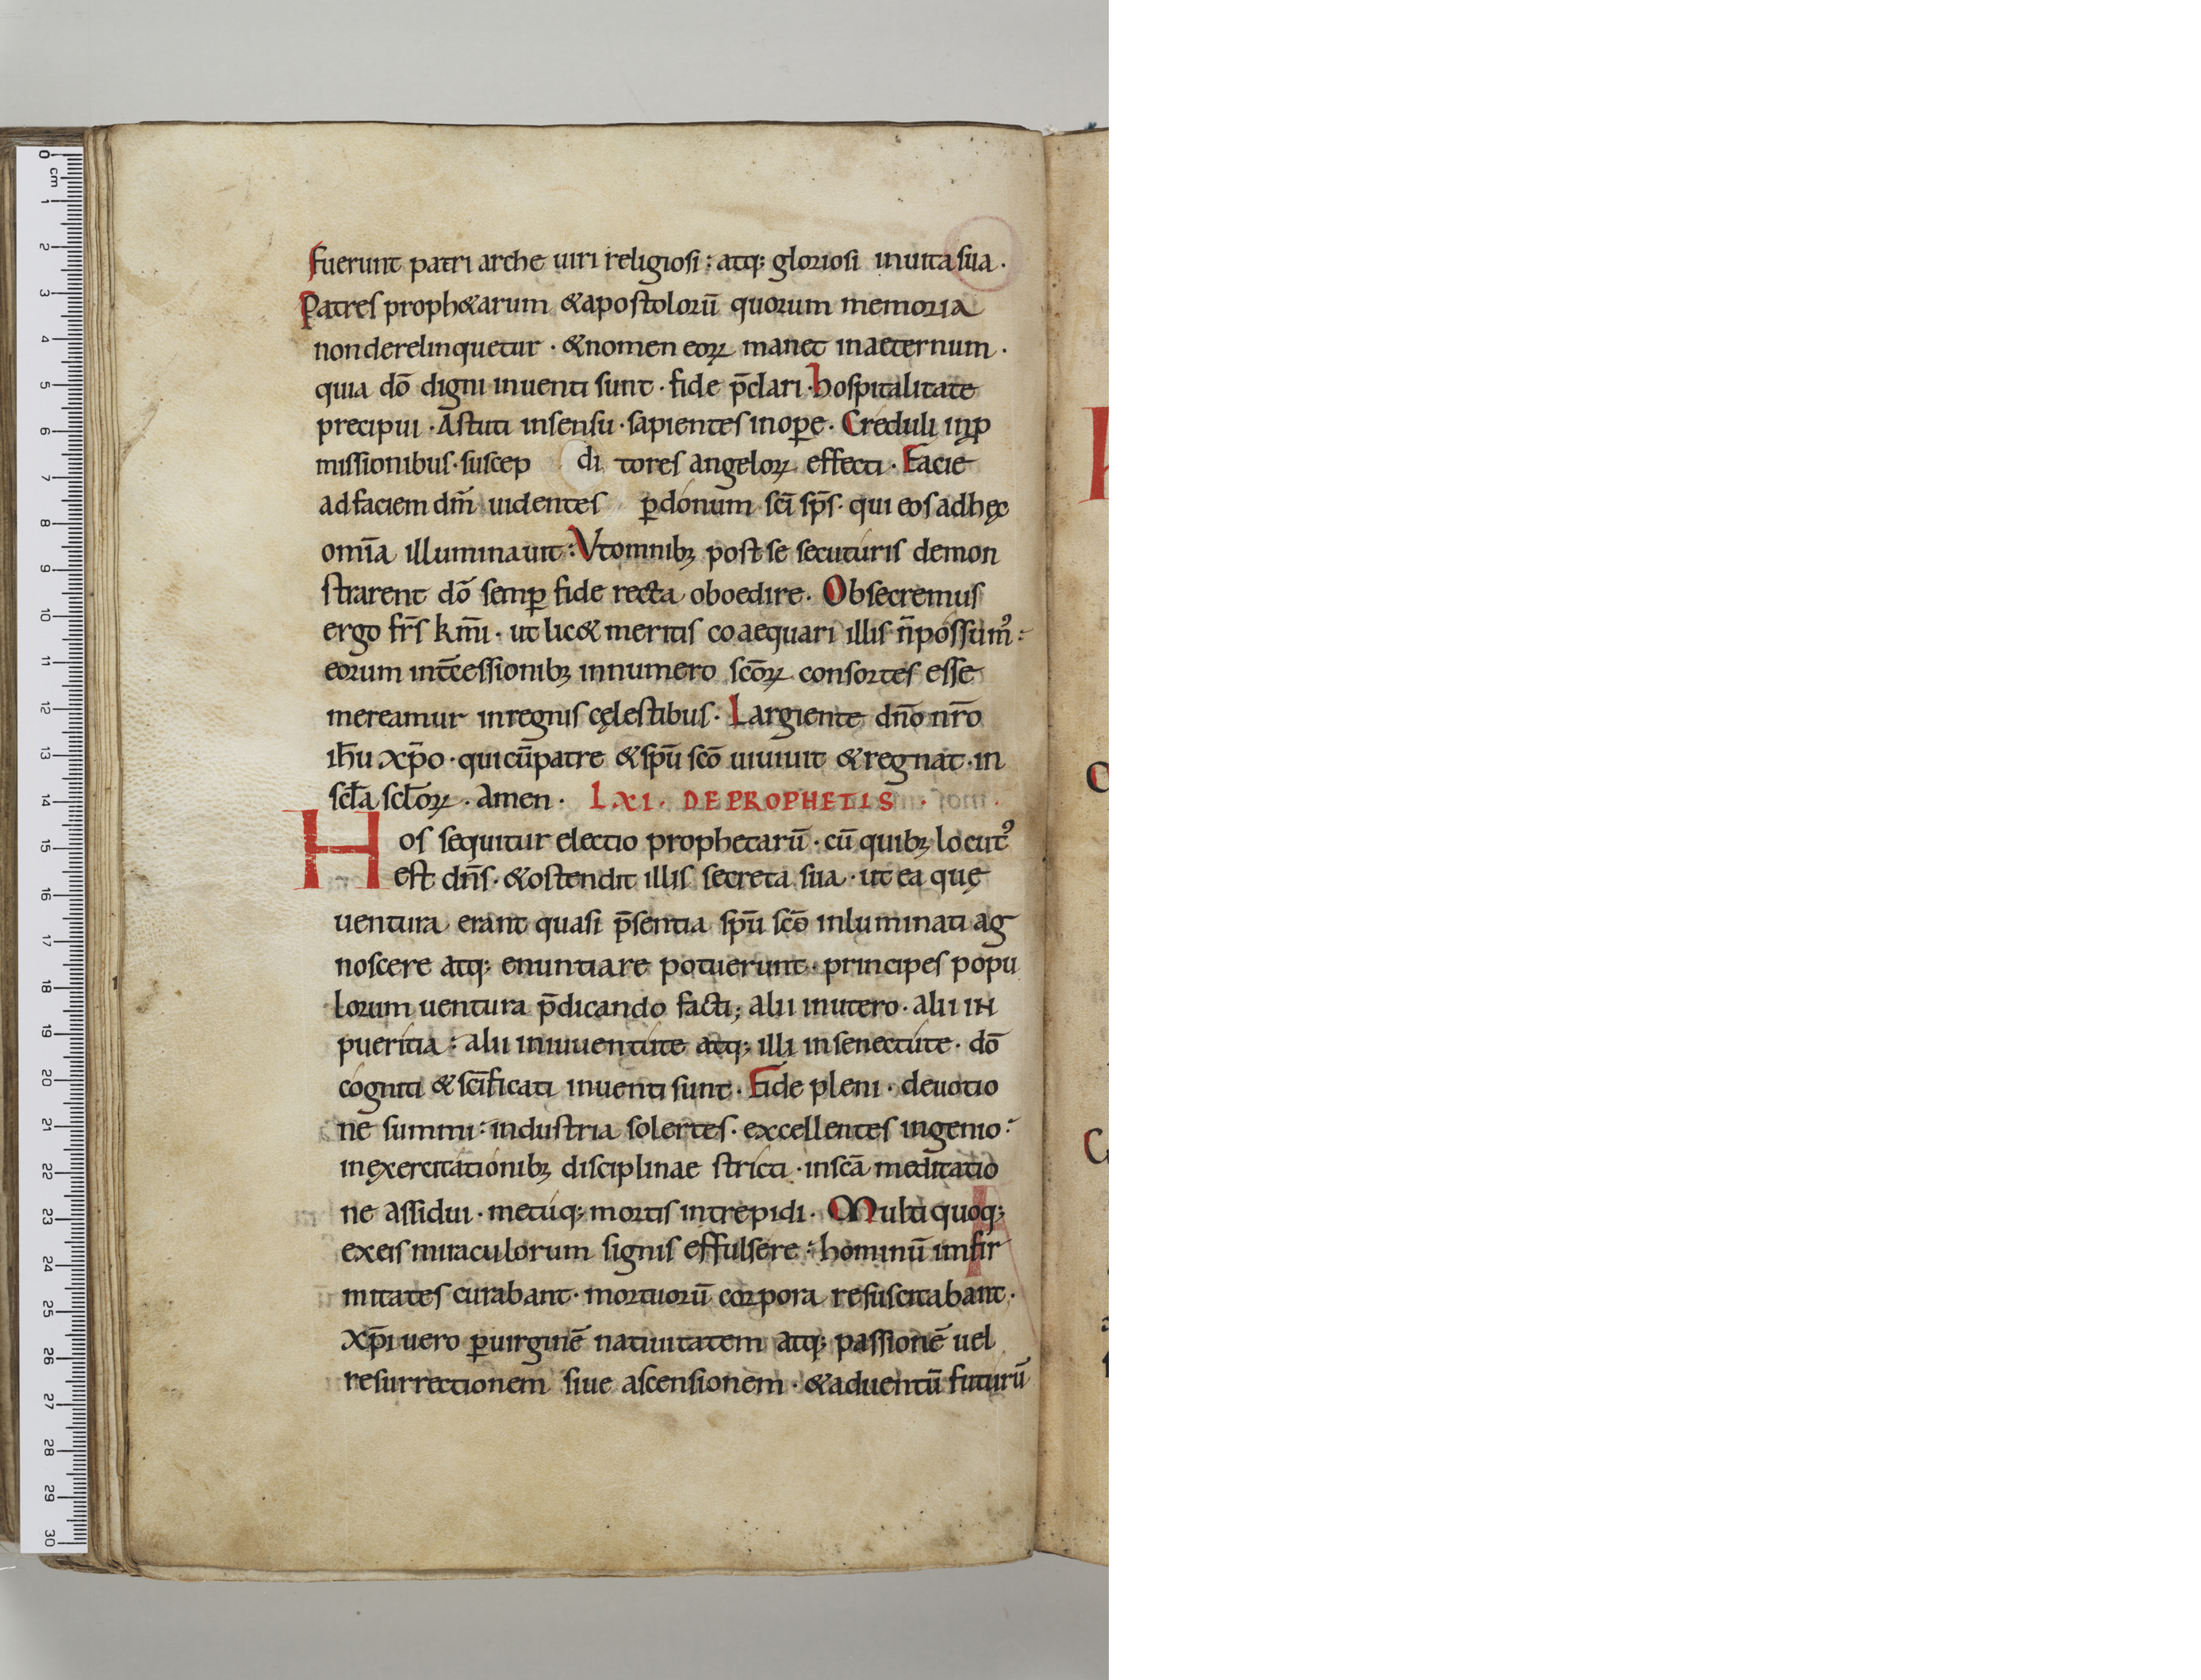 fuerunt patri arche uiri religiosi: atq; gloriosi inuita sua.
Patres proph&arum &apostolorū quorum memoria
nonderelinquetur · &nomen eoꝝ manet inaeternum ·
quia dō digni inuenti sunt · fide p̄clari · hospitalitate
precipui · Astuti insensu · sapientes inoꝑe · Creduli inꝓ
missionibus · suscep di tores angeloꝝ effecti · Facie
adfaciem dm̄ uidentes ꝑdonum sc̄i sp̄s · qui eos adhęc
om̄ia illuminauit: Vtomnibꝫ post se secuturis demon
strarent dō semꝑ fide recta oboedire. Obsecremus
ergo fr̄s km̄i · ut lic& meritis coaequari illis n̄possumꝰ:
eorum int̄cessionibꝫ innumero sc̄oꝝ consortes esse
mereamur inregnis cęlestibus · Largiente dn̄o nr̄o
ih̄u xp̄o · qui cū patre &sp̄u sc̄o uiuiuit &regnat · in
scl̄a scl̄oꝝ · Amen · LXI · DE PROPHETIS ·
Hos sequitur electio prophetarū · cū quibꝫ locutꝰ
est dn̄s · &ostendit illis secreta sua · ut ea quę
uentura erant quasi p̄sentia sp̄u sc̄o inluminati ag
noscere atq; enuntiare potuerunt · principes popu
lorum uentura p̄dicando facti; alii inutero · alii in
pueritia: alii iniuuentute atq; illi insenectute · dō
cogniti &sc̄ificati inuenti sunt · Fide pleni · deuotio
ne summi: industria solertes · excellentes ingenio:
inęxercitationibꝫ disciplinae stricti · inscā meditatio
ne assidui · metúq; mortis intrepidi · Multi quoq;
exeis miraculorum signis effulsere: hominū imfir
mitates curabant · mortuorū corpora resuscitabant ·
xp̄i uero ꝑuirginē natiuitatem atq; passionē uel
resurrectionem siue ascensionem · &aduentū futurū